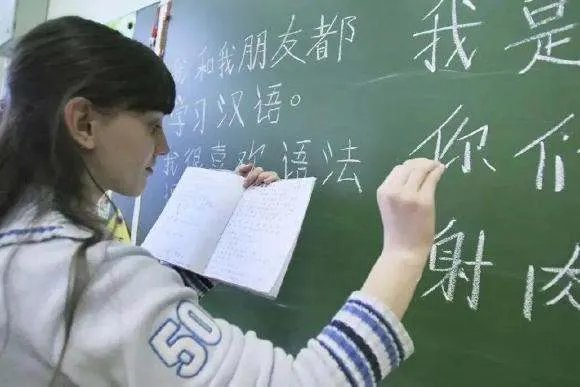 和我朋友都
学习汉语。
我很喜欢语法
我是
你们
射
50